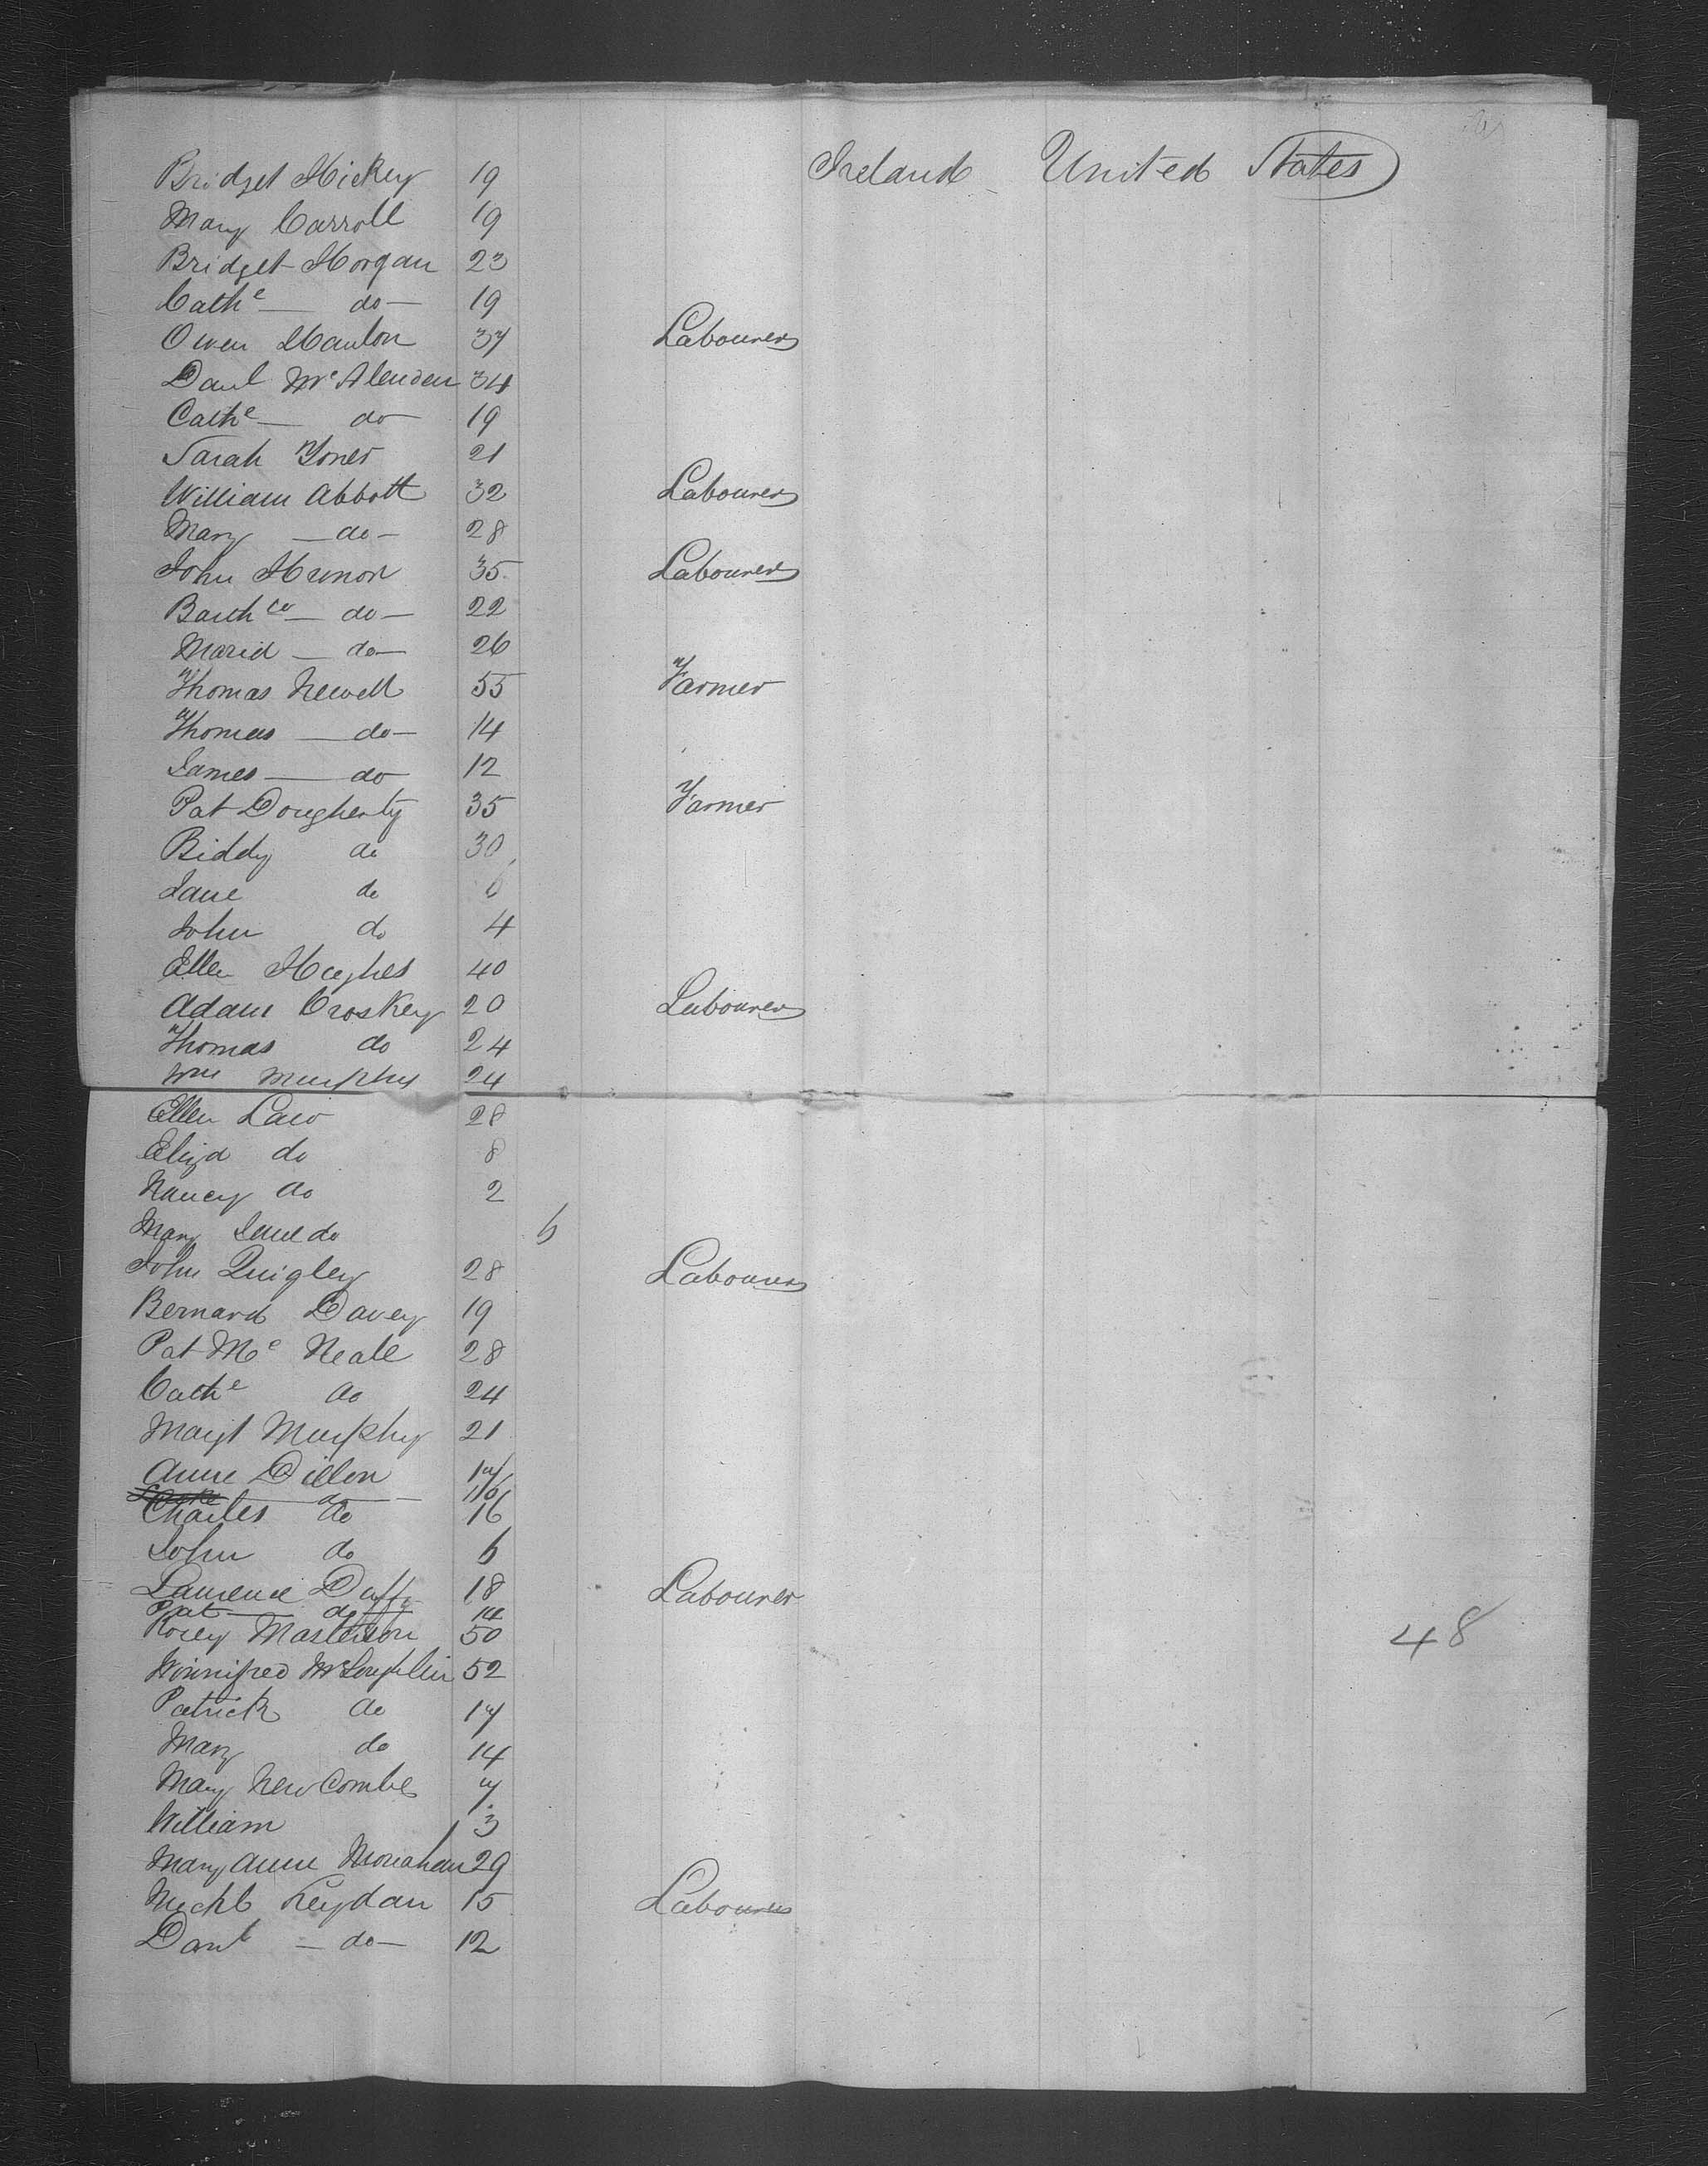 Bridget Hickey 19 Ireland United States
Mary Carroll 19
Bridget Horgan 23
Cathe — do — 19
Owen Hanlon 37 Labourer
Danl McAlenden 34
Cathe — do 19
Sarah Jones 21
William Abbott 32 Labourer
Mary — do — 28
John Hunon 35 Labourer
— do — 22
Maria — do — 26
Thomas Newell 55 Farmer
Thomas — do — 14
James — do 12
Pat Dougherty 35 Farmer
Biddy do 30
Jane do 6
John do 4
Ellen Hughes 40
Adam Croskey 20 Labourer
Thomas do 24
Wm Murphy 24
Ellen Law 28
Eliza do 8
Nancy do 2
Mary Jane do 6
John Quigley 28 Labourer
Bernard Davey 19
Pat Mc Neale 28
Cathe do 24
Margt Murphy 21
Anne Dillon 17
do 16
Charles do 16
John do 6
Laurence Duffy 18 Labourer
Pat — do 14
Rosey Masterson 50 48
Winnifred McLoughlin 52
Patrick do 17
Mary do 14
Mary NewCombe 7
William 3
Mary Anne Monahan 29
Michl Leydan 15 Labourer
Danl — do — 12